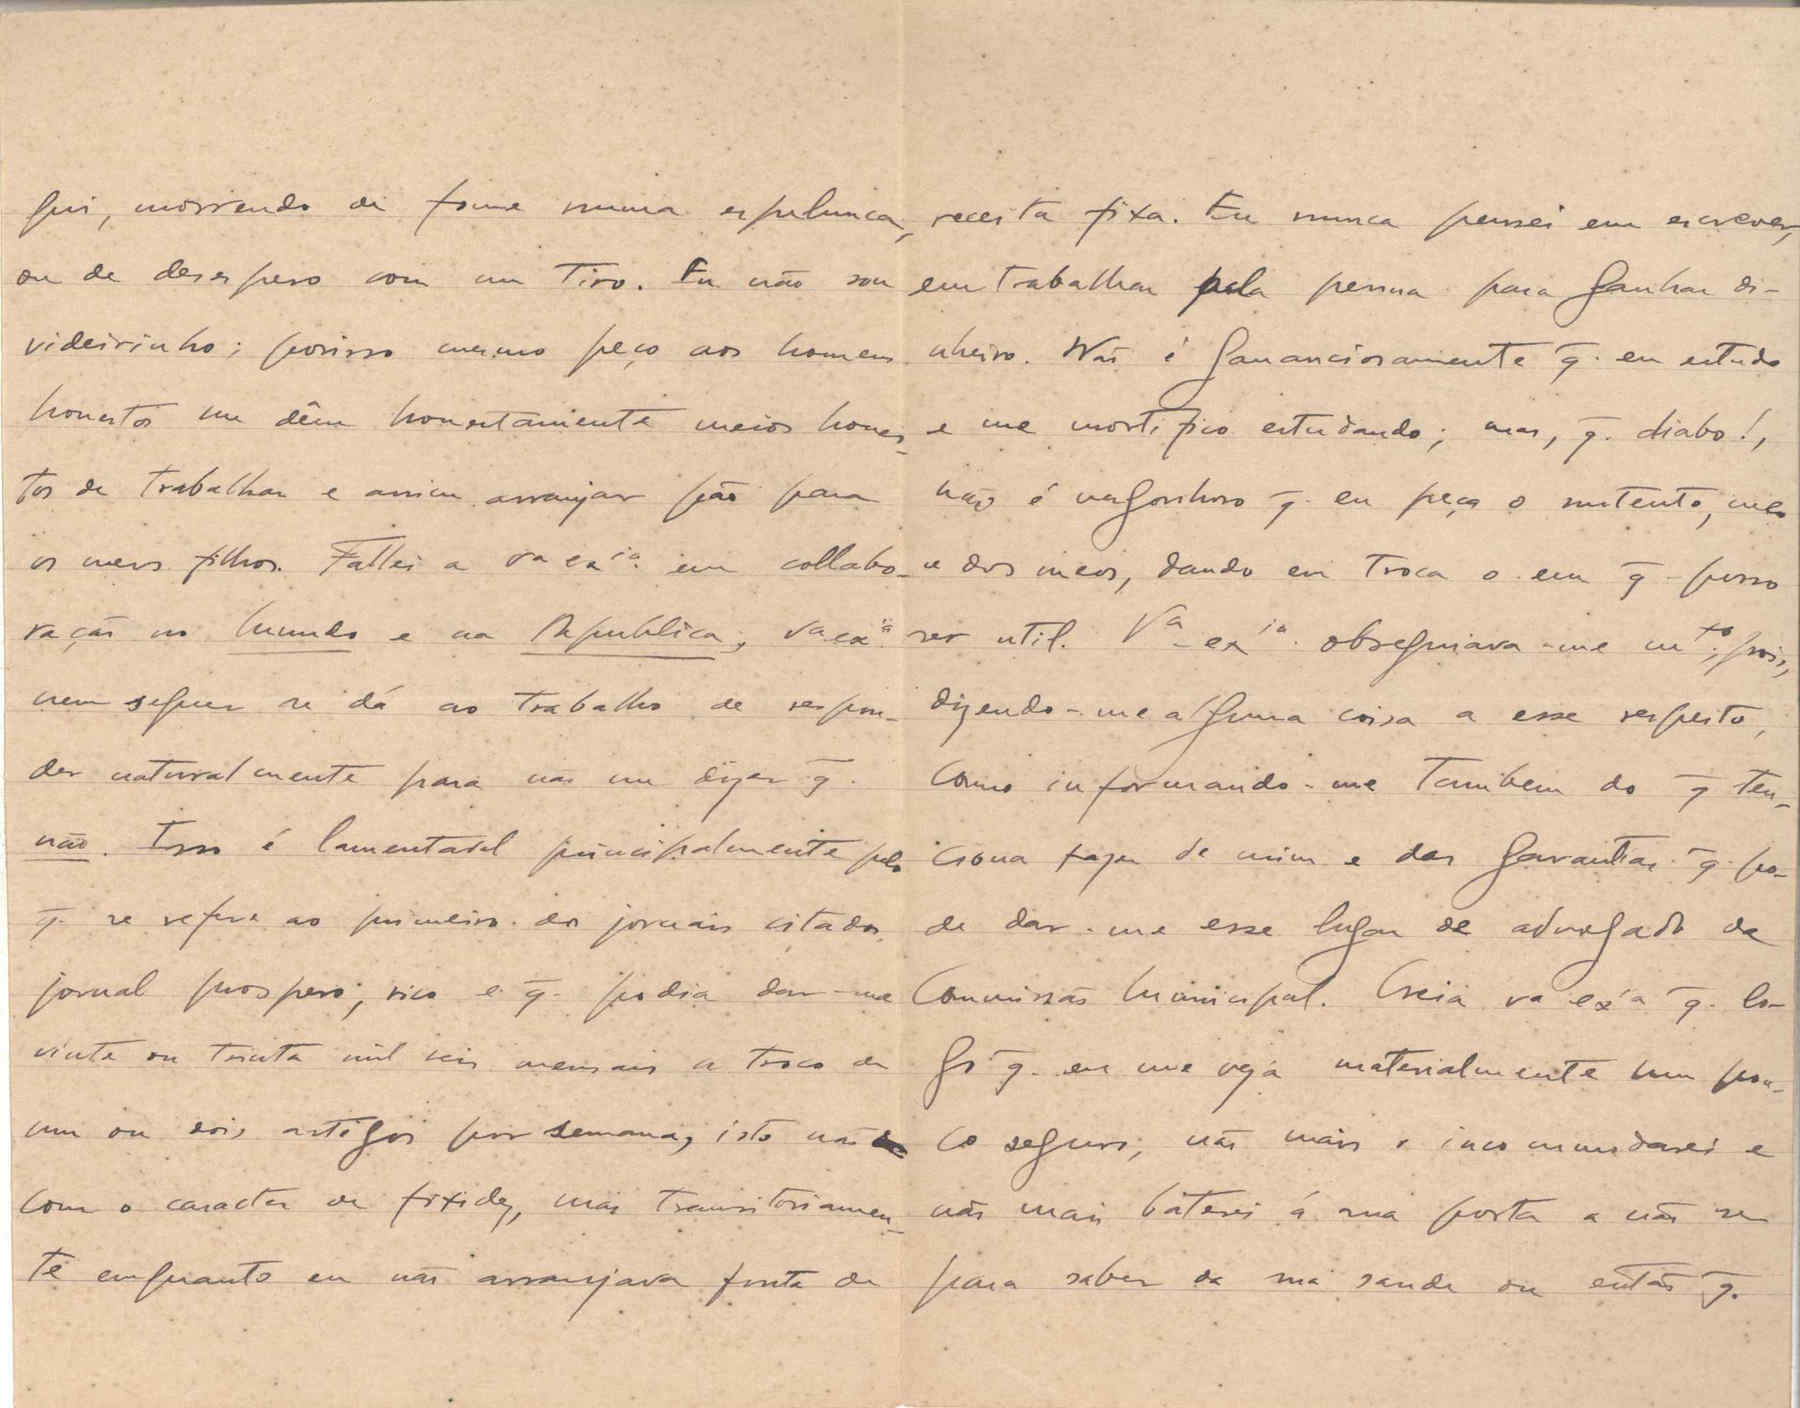 gui, morrendo de fome numa espelunca,
ou de desespero com um tiro. Eu não sou
videirinho; porisso mesmo peço aos homens
honestos me dêm honestamente meios hones-
tos de trabalhar e assim arranjar pão para
os meus filhos. Fallei a va exia. em collabo-
ração no Mundo e na Republica, va exia
nem sequer se dá ao trabalho de respon-
der naturalmente para não me dizer q̄.
não. Isso é lamentavel principalmente pelo
q̄. se refere ao primeiro dos jornais citados,
jornal prospero, rico e q̄. podia dar-me
vinte ou trinta mil reis mensais a troco de
um ou dois artigos por semana, isto não
com o caracter de fixidez, mas transitoriamen-
te emquanto eu não arranjava fonte de
receita fixa. Eu nunca pensei em escrever,
em trabalhar pela penna para ganhar di-
nheiro. Não é gananciosamente q̄. eu estudo
e me mortifico estudando; mas, q̄. diabo!,
não é vergonhoso q̄. eu peça o sustento, meu
e dos meus, dando em troca o em q̄ posso
ser util. Va exia. obsequiava-me mto, pois,
dizendo-me alguma coisa a esse respeito,
como informando-me tambem do q̄ ten-
ciona fazer de mim e das garantias q̄. po-
de dar-me esse lugar de advogado da
Commissão Municipal. Creia va exa q̄. lo-
go q̄. eu me veja materialmente um pou-
co seguro, não mais o incommodarei e
não mais baterei á sua porta a não ser
para saber da sua saude ou então q̄.